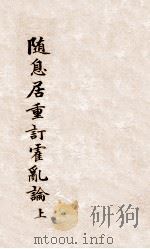 随息居重訂霍亂論上
mtoou.info